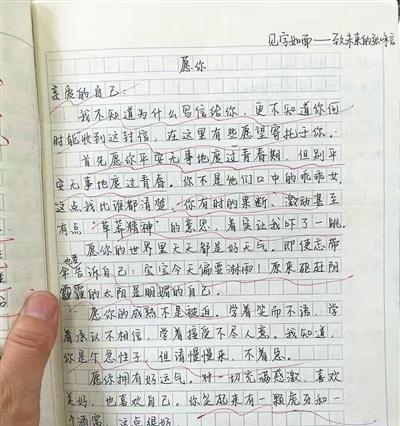 见字如面——致未来的张咏言
愿你
亲爱的自己：
我不知道为什么写信给你，更不知道你何
时能收到这封信，在这里有些愿望寄托于你。
首先愿你平安无事地度过青春期，但别平
安无事地度过青春。你不是他们口中的乖乖女，
这点我比谁都清楚。你有时的果断、激动甚至
有点“草莽精神”的意思，着实让我吓了一跳。
愿你的世界里天天都是好天气。即便忘带
也要
伞告诉自己：宝宝今天偏要淋雨！原来驱赶阴
霾的太阳是明媚的自己。
愿你的成熟不是被迫。学着笑而不语，学
着承认不相信，学着接受不尽人意。我知道，
你是个急性子，但请慢慢来，不着急。
愿你拥有好运气。对一切充满感激，喜欢
美好，也喜欢自己。你笑起来有一颗虎牙和一
个酒窝，这点很好